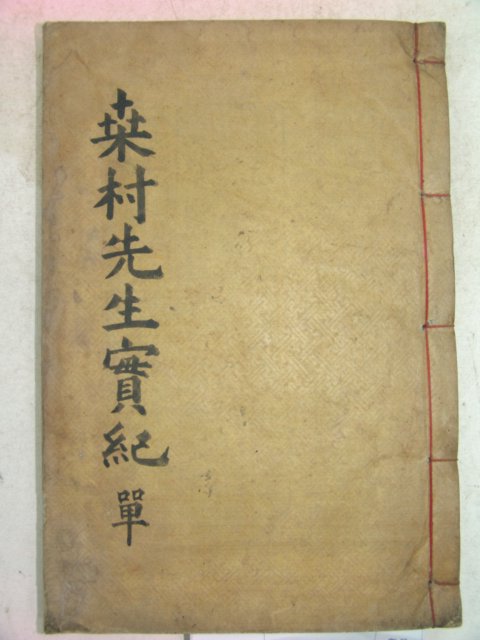 桒村先生實紀 單